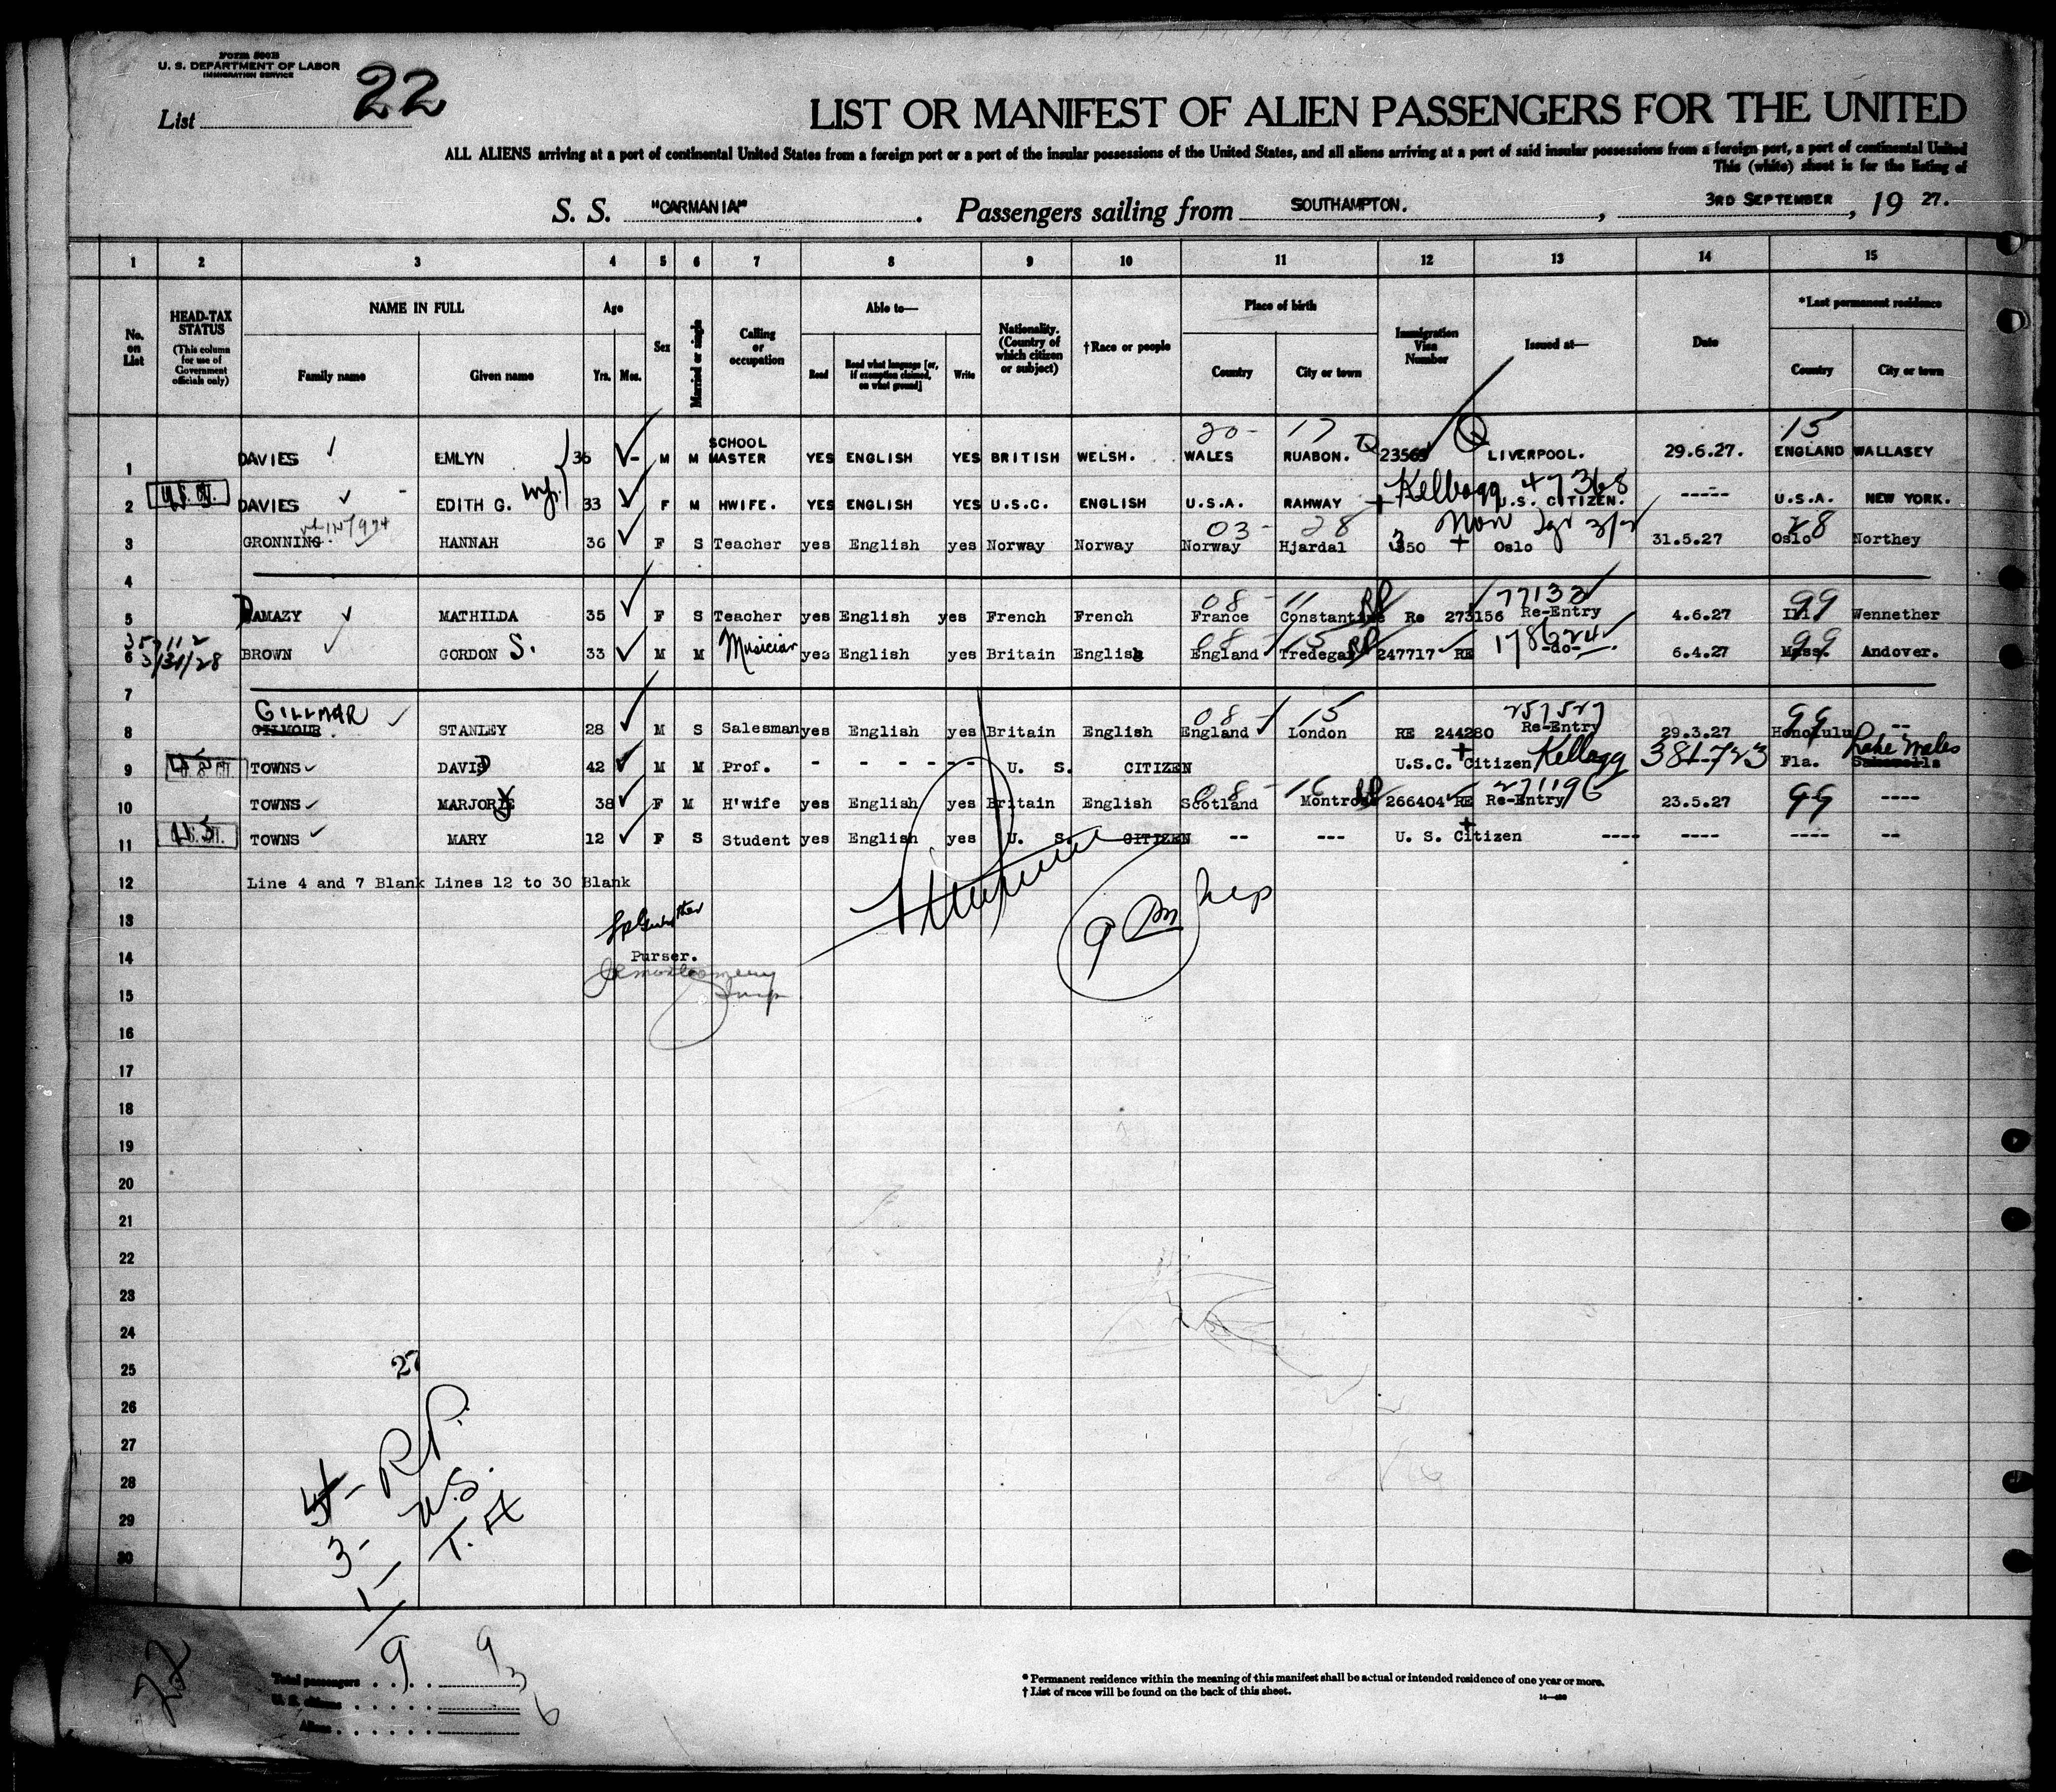 Form 500B
U. S. DEPARTMENT OF LABOR
IMMIGRATION SERVICE
List 22
LIST OR MANIFEST OF ALIEN PASSENGERS FOR THE UNITED
ALL ALIENS arriving at a port of continental United States from a foreign port or a port of the insular possessions of the United States, and all aliens arriving at a port of said insular possessions from a foreign port, a port of continental United
This (white) sheet is for the listing of
S. S. "CARMANIA" . Passengers sailing from SOUTHAMPTON. , 3RD SEPTEMBER , 19 27.
1 2 3 4 5 6 7 8 9 10 11 12 13 14 15
No. on List
HEAD-TAX STATUS (This column for use of Government officials only)
NAME IN FULL
Family name Given name
Age
Yrs. Mos.
Sex
Married or single
Calling or occupation
Able to—
Read Read what language [or, if exemption claimed, on what ground] Write
Nationality. (Country of which citizen or subject)
†Race or people
Place of birth
Country City or town
Immigration Visa Number
Issued at—
Date
*Last permanent residence
Country City or town
20- 17 Q Q 15
1 DAVIES EMLYN 36 M M SCHOOL MASTER YES ENGLISH YES BRITISH WELSH. WALES RUABON. 23565 LIVERPOOL. 29.6.27. ENGLAND WALLASEY
Kellogg 47368
2 DAVIES EDITH G. wife 33 F M HWIFE. YES ENGLISH YES U.S.C. ENGLISH U.S.A. RAHWAY + U.S. CITIZEN. ----- U.S.A. NEW YORK.
03- 28 28
3 GRONNING HANNAH 36 F S Teacher yes English yes Norway Norway Norway Hjardal 3350 + Oslo 31.5.27 Oslo Northey
4
08- 11 RP 77133 99
5 DAMAZY MATHILDA 35 F S Teacher yes English yes French French France Constantine Re 273156 Re-Entry 4.6.27 Ill Wennether
357112 08- 15 RP 178624 99
6 3/31/28 BROWN GORDON S. 33 M M Musician yes English yes Britain English England Tredegar 247717 RE -do- 6.4.27 Mass. Andover.
7
GILLMAR 08- 15 257527 99
8 GILMOUR STANLEY 28 M S Salesman yes English yes Britain English England London RE 244280 Re-Entry 29.3.27 Honolulu --
Lake Wales
9 TOWNS DAVID 42 M M Prof. - - - - - - - U. S. CITIZEN U.S.C. + Citizen Kellogg 381723 Fla.
08- 16 RP 271196 99
10 TOWNS MARJORY 38 F M H'wife yes English yes Britain English Scotland Montrose 266404 RE Re-Entry 23.5.27 ----
11 TOWNS MARY 12 F S Student yes English yes U. S. CITIZEN -- --- U. S. + Citizen ---- ---- ---- --
12 Line 4 and 7 Blank Lines 12 to 30 Blank
13
14 Purser.
9 Pm Insp
15
16
17
18
19
20
21
22
23
24
25 27
26
27
28 4 - R.P.
29 3- U.S.
30 1- T.
22
Total passengers . . 9 . . 9
U. S. citizens . . . . . 3
Aliens . . . . . . 6
* Permanent residence within the meaning of this manifest shall be actual or intended residence of one year or more.
† List of races will be found on the back of this sheet.